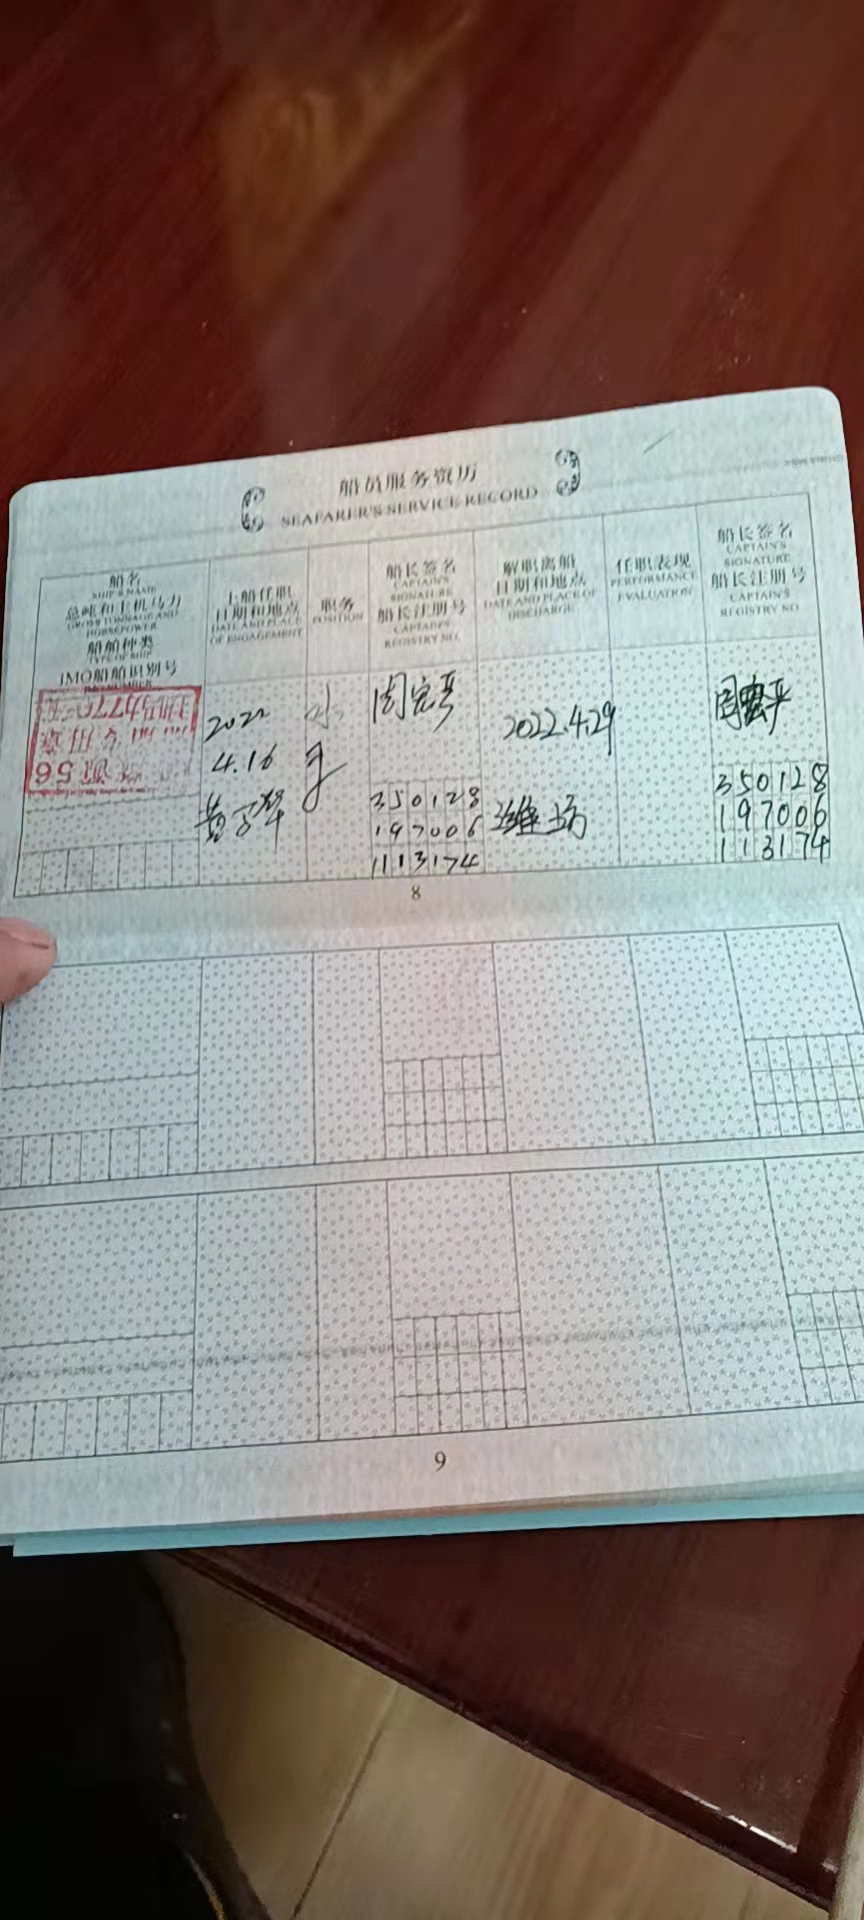 船员服务资历
SEAFARER'S SERVICE RECORD
船名
SHIP'S NAME
总吨和主机马力
GROSS TONNAGE AND
HORSEPOWER
船舶种类
TYPE OF SHIP
IMO船舶识别号
上船任职
日期和地点
DATE AND PLACE
OF ENGAGEMENT
职务
POSITION
船长签名
CAPTAIN'S
SIGNATURE
船长注册号
CAPTAIN'S
REGISTRY NO.
解职离船
日期和地点
DATE AND PLACE OF
DISCHARGE
任职表现
PERFORMANCE
EVALUATION
船长签名
CAPTAIN'S
SIGNATURE
船长注册号
CAPTAIN'S
REGISTRY NO
2022
4.16
水
手
周宏平
350128
197006
113174
2022.4.29
潍坊
周宏平
350128
197006
113174
8
9